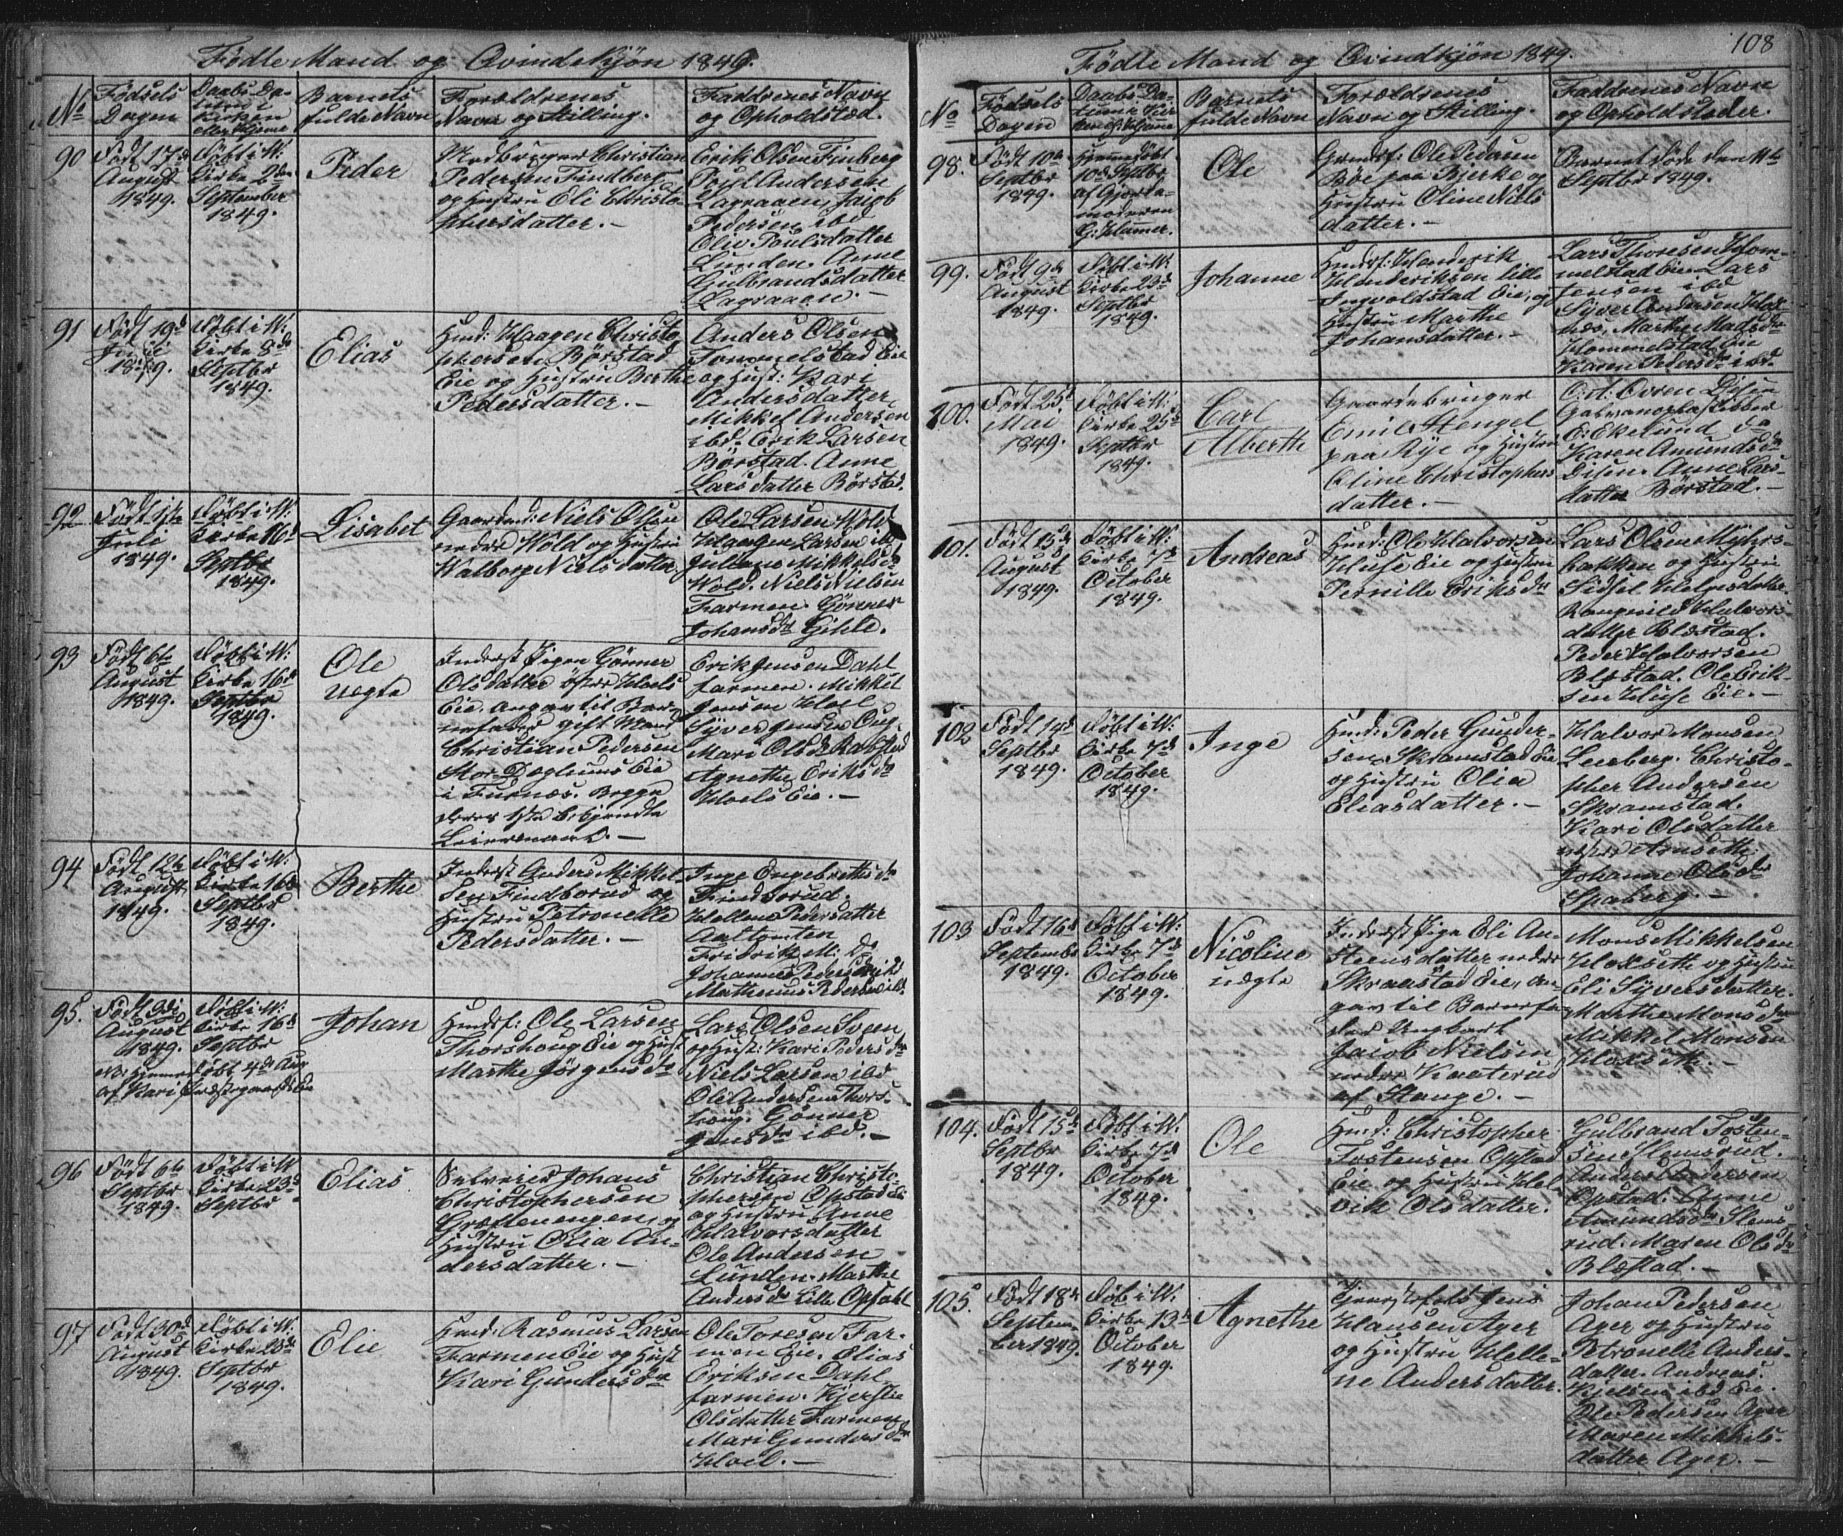 Fødte Mand og Qvindekjøn 1849.
No
Fødsels
Dagen
Daabs Da-
tum i
Kirken
eller Hjeme
Barnets
fulde Navn
Forældrenes
Navn og Stilling.
Faddrenes Navn
og Opholdsted.
90
Født 17de
August
1849.
Døbt i V:
Kirke 2den
September
1849.
Peder
Christian
Pedersen Findberg
og Hustru Eli Christo-
phersdatter. —
Erik Olsen Finberg
Poul Andersen
Lagraaen, Jacob
Pedersen ibd
Oliv Poulsdatter
Lunden. Anne
Gulbrandsdatter
Lagraaen. —
91
Født 19de
1849.
Døbt i V:
Kirke 8de
Septbr
1849.
Elias
Husd: Haagen Christo
phersen Børstad
Eie og Hustru Berthe
Pedersdatter. —
Anders Olsen
Tommelstad Eie
og Hust: Kari
Andersdatter
Mikkel Andersen
ibd. Erik Larsen
Børstad. Anne
Larsdatter Børstad.
92
Født 17de
1849.
Døbt i V:
Kirke 16de
Septbr
1849.
Lisabet
Gaardmd: Niels Olsen
nedre Wold og Hustru
Walborg Nielsdatter
Ole Larsen Wold
Haagen Larsen ibd
Juliane Mikkelsdr
Wold. Niels Nielsen
Farmen. Gønner
Johansdr Gihle.
93
Født 6te
August
1849.
Døbt i V:
Kirke 16de
Septbr
1849.
Ole
uægte
Inderst Pigen Gønner
Olsdatter østre Hoels
Eie. angav til Bar-
nefader gift Mand
Christian Pedersen
Stor-Dæglums Eie
i Furnæs. Begge
deres 1ste bekjendte
Leiermaal. —
Erik Jensen Dahl
farmen. Mikkel
Jensen Hoel
Syver Jensen
Mari Olsdr
Agnethe Eriksdr
Hoels Eie. —
94
Født 12te
August
1849.
Døbt i V:
Kirke 16de
Septbr
1849.
Berthe
Inderst Anders Mikkel
sen Findsorud og
Hustru Petronelle
Pedersdatter. —
Inge Engebretsdr
Findsorud
Hellene Pedersdatter
Aaltomten
Fridrik M: do
Johannes Pedersen
Mathenus Pedersen ibd.
95.
Født 3die
August
1849.
Døbt i V:
Kirke 16de
Septbr
NB: Hjemmedøbt 4de Aug
af Kari Præstegaards Eie
Johan
Husmd: Ole Larsen
Thorshaug Eie og Hust
Marthe Jørgensdr
Lars Olsen Sveen
og Hust: Kari Pedersdr
Niels Larsen ibd
Ole Andersen Thors-
houg. Gønner
Jensdr ibd. —
96
Født 6te
Septbr
1849.
Døbt i V:
Kirke 23de
Septbr
Elias
Selveier Johans
Christophersen
Græftenengen, og
Hustru Olia An-
dersdatter. —
Christian Christo
phersen Opstad Eie
og Hustru Anne
Halvorsdatter
Ole Andersen
Lunden. Marthe
Andersdr Lille Opsahl
97
Født 30de
August
1849.
Døbt i V:
Kirke 23de
Septbr
1849.
Elie
Husmd: Rasmus Larsen
Farmen Eie og Hust
Kari Gundersdr
Ole Toresen Far-
men Eie. Elias
Eriksen Dahl
farmen. Kjerstie
Olsdatter Farmen
Mari Gundersdr
Hoel. —
108
Fødte Mand og Qvindkjøn 1849.
No
Fødsels
Dagen
Daabs Da-
tum i Kir-
ken el: Hjeme
Barnets
fulde Navn
Forældrenes
Navn og Stilling.
Faddrenes Navn
og Opholdsteder.
98.
Født 10de
Septbr
1849.
Hjemmedøbt
10de Septbr
af Gjorde-
moderen
G: Hamer.
Ole
Ole Pedersen
Bøe paa Bjerke og
Hustru Oline Niels
datter. —
Barnet døde den 11te
Septbr 1849.
99.
Født 9de
August
1849.
Døbt i V:
Kirke 23de
Septbr
1849.
Johanne
Husmd: Henderik
Henderiksen lille
Ingvoldstad Eie, og
Hustru Marthe
Johansdatter. —
Lars Thoresen Hom-
melstad Eie Lars
Jensen ibd
Syver Andersen
Marthe Madsdr
Hommelstad Eie
Karen Pedersdr ibd.
100.
Født 25de
Mai
1849.
Døbt i V:
Kirke 25de
Septbr
1849.
Carl
Alberth
Gaardebruger
Emil Stengel
paa Rye og Hustru
Eline Christophers
datter. —
Disen
E: Ekelund do
Karen Amundsdr
Disen. Anne Lars-
datter Børstad. —
101.
Født 15de
August
1849.
Døbt i V:
Kirke 7de
October
1849.
Andreas
Husmd: Ole Halvorsen
Huse Eie og Hustru
Pernille Eriksdr
Lars Olsen Myhrs-
bakken og Hustru
Sidsel Helgesdatter
Rangnild Halvors-
datter Blæstad.
Peder Halvorsen
Blæstad. Ole Erik-
sen Huse Eie. —
102
Født 14de
Septbr
1849.
Døbt i V:
Kirke 7de
October
1849.
Inge
Husmd: Peder Gunder-
sen Skramstad Eie
og Hustru Olia
Eliasdatter. —
Halvor Monsen
Leeberg. Christo-
pher Andersen
Skramstad.
Kari Olsdatter
Arnseth.
Johanne Olsdr
Spaberg. —
103
Født 16de
September
1849.
Døbt i V:
Kirke 7de
October
1849.
Nicoline
uægte
Inderst Pige Eli An-
steensdatter nedre
Skraastad Eie, an-
gav til Barnefa-
der Ungkarl
Jacob Nielsen
nedre Kaaterud
af Stange. —
Mons Mikkelsen
Hoxseth og Hustru
Eli Syversdatter.
Marthe Monsdr
Mikkel Monsen
Hoxseth. —
104.
Født 15de
Septbr
1849.
Døbt i V:
Kirke 7de
October
1849.
Ole
Husmd: Christopher
Tostensen Opstad
Eie og Hustru Hel-
vik Olsdatter.
Gulbrand Tosten-
sen Slemsrud.
Anders Pedersen
Opstad. Anne
Amundsdr Slems-
rud. Maren Olsdr
Blæstad. —
105.
Født 18de
Septem-
ber 1849.
Døbt i V:
Kirke 13de
October
1849.
Agnethe
Jens
Hansen Ager
og Hustru Helle-
ne Andersdatter.
Johan Pedersen
Ager og Hustru
Petronelle Anders-
datter. Andreas
Kjelsen ibd Eie.
Ole Pedersen Ager
Maren Mikkels-
datter Ager. —